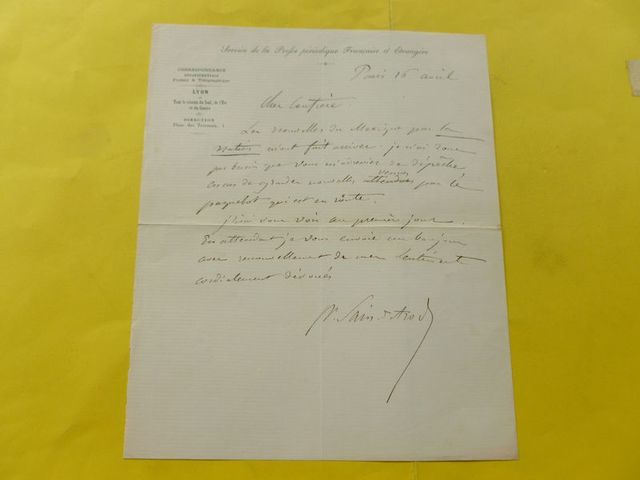 Service de la Presse périodique Française et Etrangère
CORRESPONDANCE
Postale & Télégraphique
LYON
DIRECTION
Place des Terreaux, 1
Paris 16 avril
Cher Confrère
Les nouvelles du Mexique par
m'ont fait arriver. je n'ai donc
pas besoin que vous m'adressiez de dépêche
nouvelles attendues venues par le
paquebot qui est en route.
J'irai vous voir au premier jour.
En attendant je vous envoie un bonjour
avec renouvellement de mes sentiments
cordialement dévoués